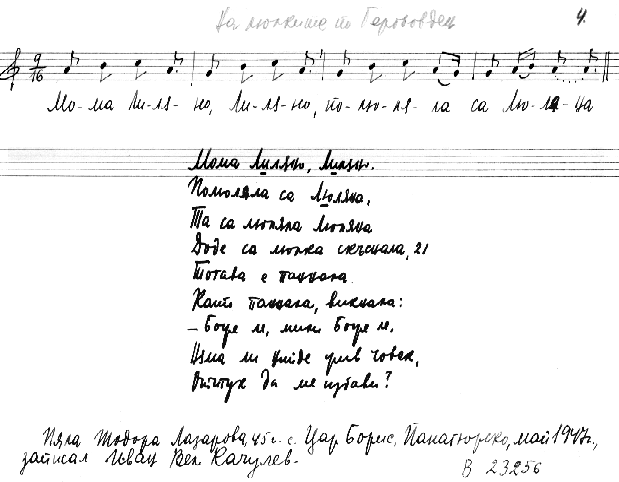 На люлките по Гергьовден
4.
9/16
Мо-ма Ли-ля-но, Ли-ля-но, по-лю-ля-ла са Лю-ля-на
Мома Лиляно, Лиляно.
Полюляла са Люляна,
Та са люляла Люляна
Доде са люлка скъснала, 21
Тогава е паднала.
Като паднала, викнала:
– Боже ле, мили Боже ле,
Няма ли нийде жив човек,
Оттук да ме избави?
Пяла Тодора Лазарова, 45 г. с. Цар Борис, Панагюрско, май 1947 г.,
записал Иван Вел. Качулев.
В 23256